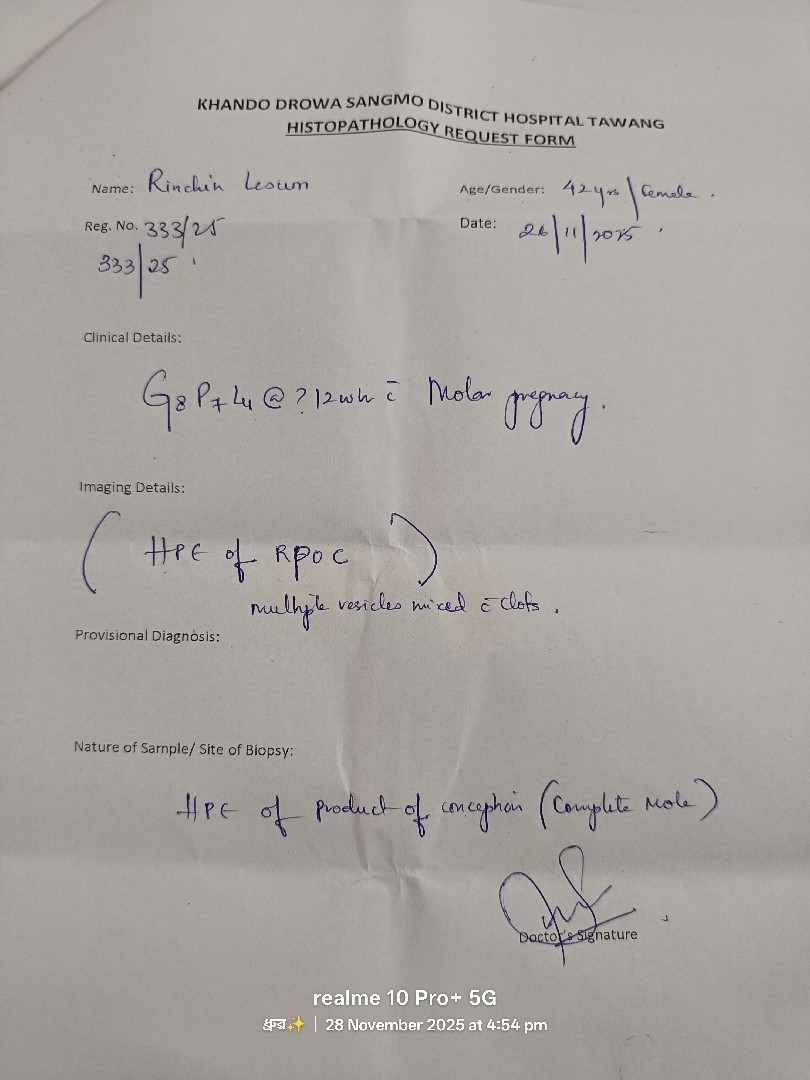 KHANDO DROWA SANGMO DISTRICT HOSPITAL TAWANG
HISTOPATHOLOGY REQUEST FORM
Name: Rinchin Lesum Age/Gender: 42 yrs / Female.
Reg. No. 333/25 Date: 26/11/2025
333/25
Clinical Details:
G8 P7 L4 @ ? 12 wk c̄ Molar pregnancy.
Imaging Details:
( HPE of RPOC )
multiple vesicles mixed c̄ clots.
Provisional Diagnosis:
Nature of Sample/ Site of Biopsy:
HPE of product of conception (Complete Mole)
Doctor's Signature
realme 10 Pro+ 5G
ध्रुव✨ | 28 November 2025 at 4:54 pm